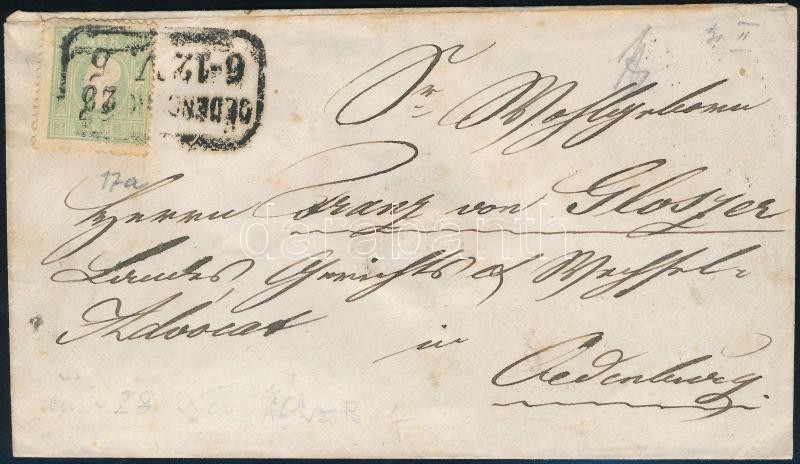 OEDENB
6-12 V
17a
II
Sr Wohlgeboren
Herrn Franz von Gloszer
darabanth
Landes, Gerichts & Wechsel=
Advocat in
Oedenburg.